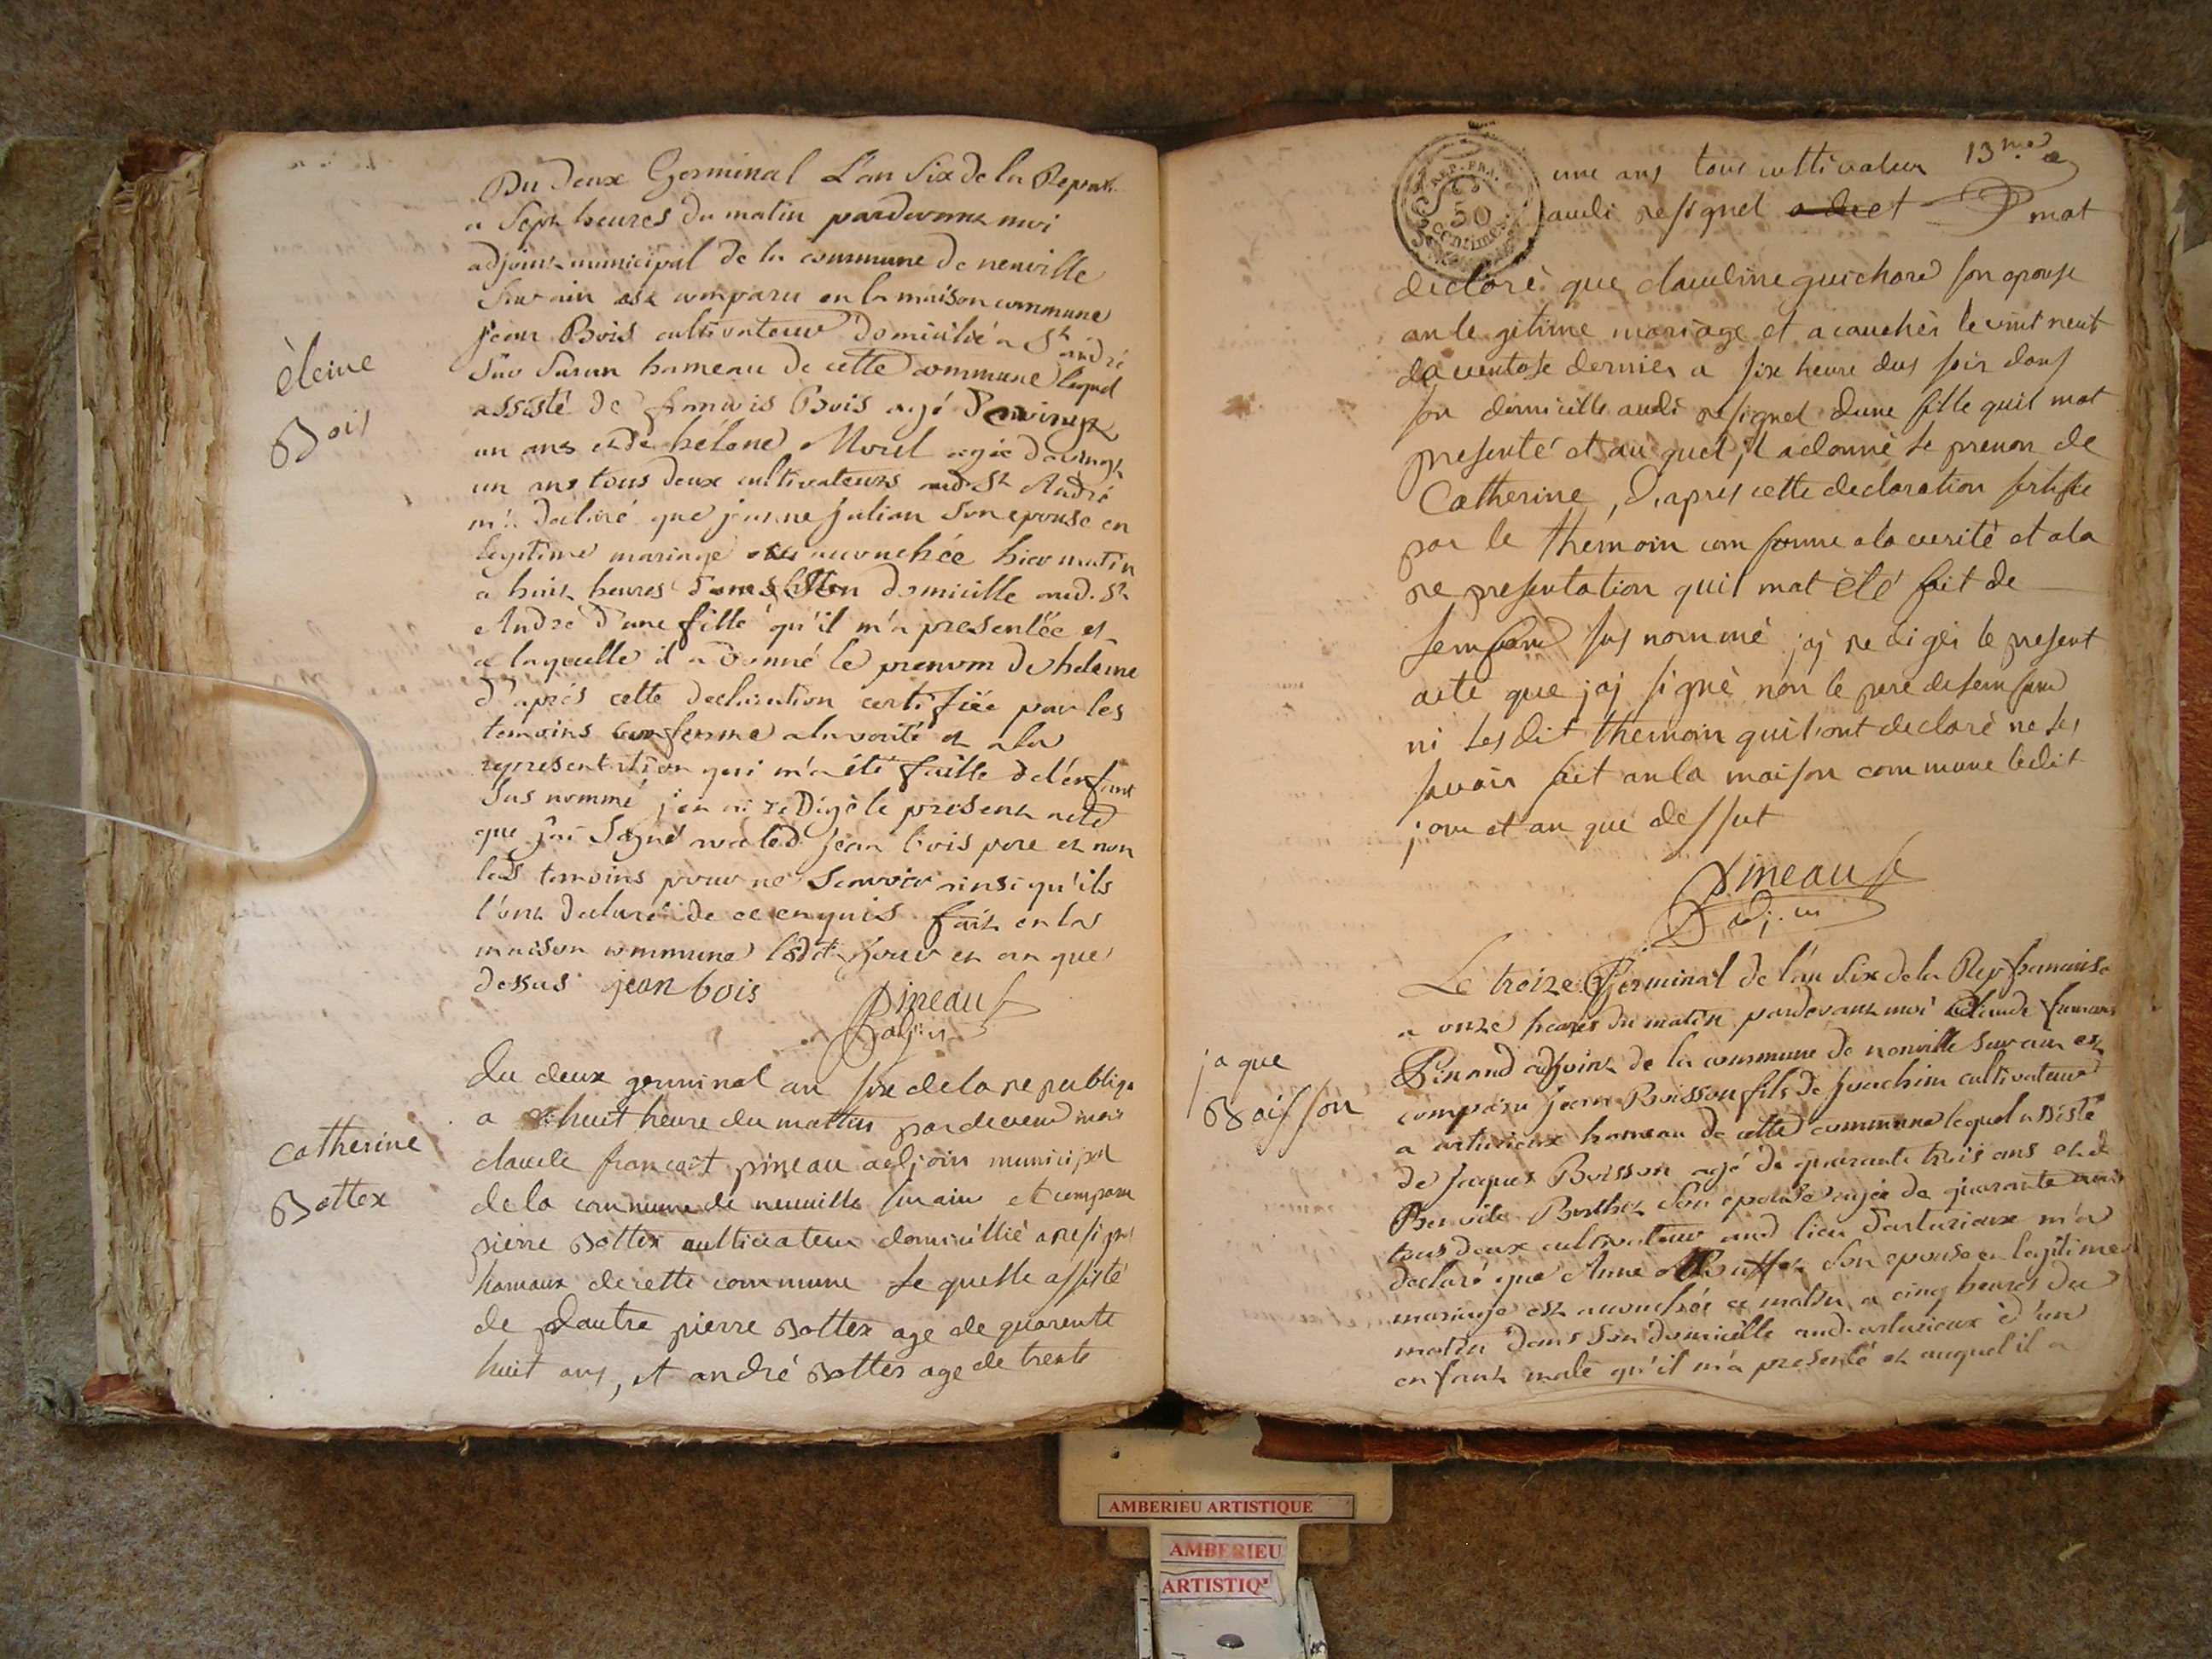 Du deux Germinal L'an Six de la Repub
a Sept heures du matin pardevant moi
adjoint municipal de la commune de neuville
Sur ain est comparu en la maison commune
jean Bois cultivateur domicilié a St andré
Sur Suran hameau de cette commune lequel
assisté de francois Bois agé de vingt
un ans et de héléne Morel agée de vingt
un ans tous deux cultivateurs aud. St André
m'a declaré que jeanne julian Son epouse en
legitime mariage est accouchée hier matin
a huit heures dans Son domicille aud. St
André d'une fille qu'il m'a presentée et
a laquelle il a donné le prenom de heleine
d'aprés cette declaration certifiée par les
temoins conforme a la verité et a la
representation qui m'a été faitte de l'enfant
Sus nommé, j'en ai redigé le present acte
que j'ai Signé avec led jean bois pere et non
les temoins pour ne Scavoir ainsi qu'ils
l'ont declaré de ce enquis fait en la
maison commune ledit jour et an que
dessus jean bois
pineau
adjoint
èleine
Bois
du deux germinal an six de la republiqe
a huit heure du mattin pardevend moi
claude francoit pineau adjoin municipal
de la commune de neuville sur ain et comparu
pierre Bottex cultivateur domicillié a resignel
hamaux de cette commune le quelle assisté
de dautre pierre Bottex age de quarente
huit ans, et andré Bottex age de trente
catherine
Bottex
13me
REP. FRA.
50
centimes
une ans tous cultivateur
audi resignel mat
declarè que claudine guichard son epouse
an le gitime mariage et acauchér le vint neut
de ventose dernier a six heure dus soir dans
son domicille audi resignel dune fille quil mat
presenté et au quel il a donné le prenon de
Catherine, d'apres cette declaration sertifie
par le themoin com forme a la verité et a la
re presentation quil mat èté fait de
lenfant sus nommé jaj redigér le present
acte que jaj signè non le pere de lenfand
ni lesdit themoin quil ont declaré ne les
savoir fait an la maison commune ledit
jour et an que dessut
pineau
adjoin
Le treize Germinal de l'an Six de la Rep francaise
a onze heures du matin pardevant moi Claude francois
Pinaud adjoint de la commune de neuville Sur ain est
comparu jean Buisson fils de joachim cultivateur
a arturieux hameau de cette commune lequel assisté
de jaques Boisson agé de quarante trois ans et de
Benoite Berthet Son epouse agée de quarante trois
tous deux cultivateur aud lieu d'arturieux m'a
declaré que Anne Buffet Son epouse en legitime
mariage est accouchée ce matin a cinq heures du
matin dans Son domicille aud. arturieux d'un
enfant male qu'il m'a presenté et auquel il a
jaque
Boisson
AMBERIEU ARTISTIQUE
AMBERIEU
ARTISTIQ